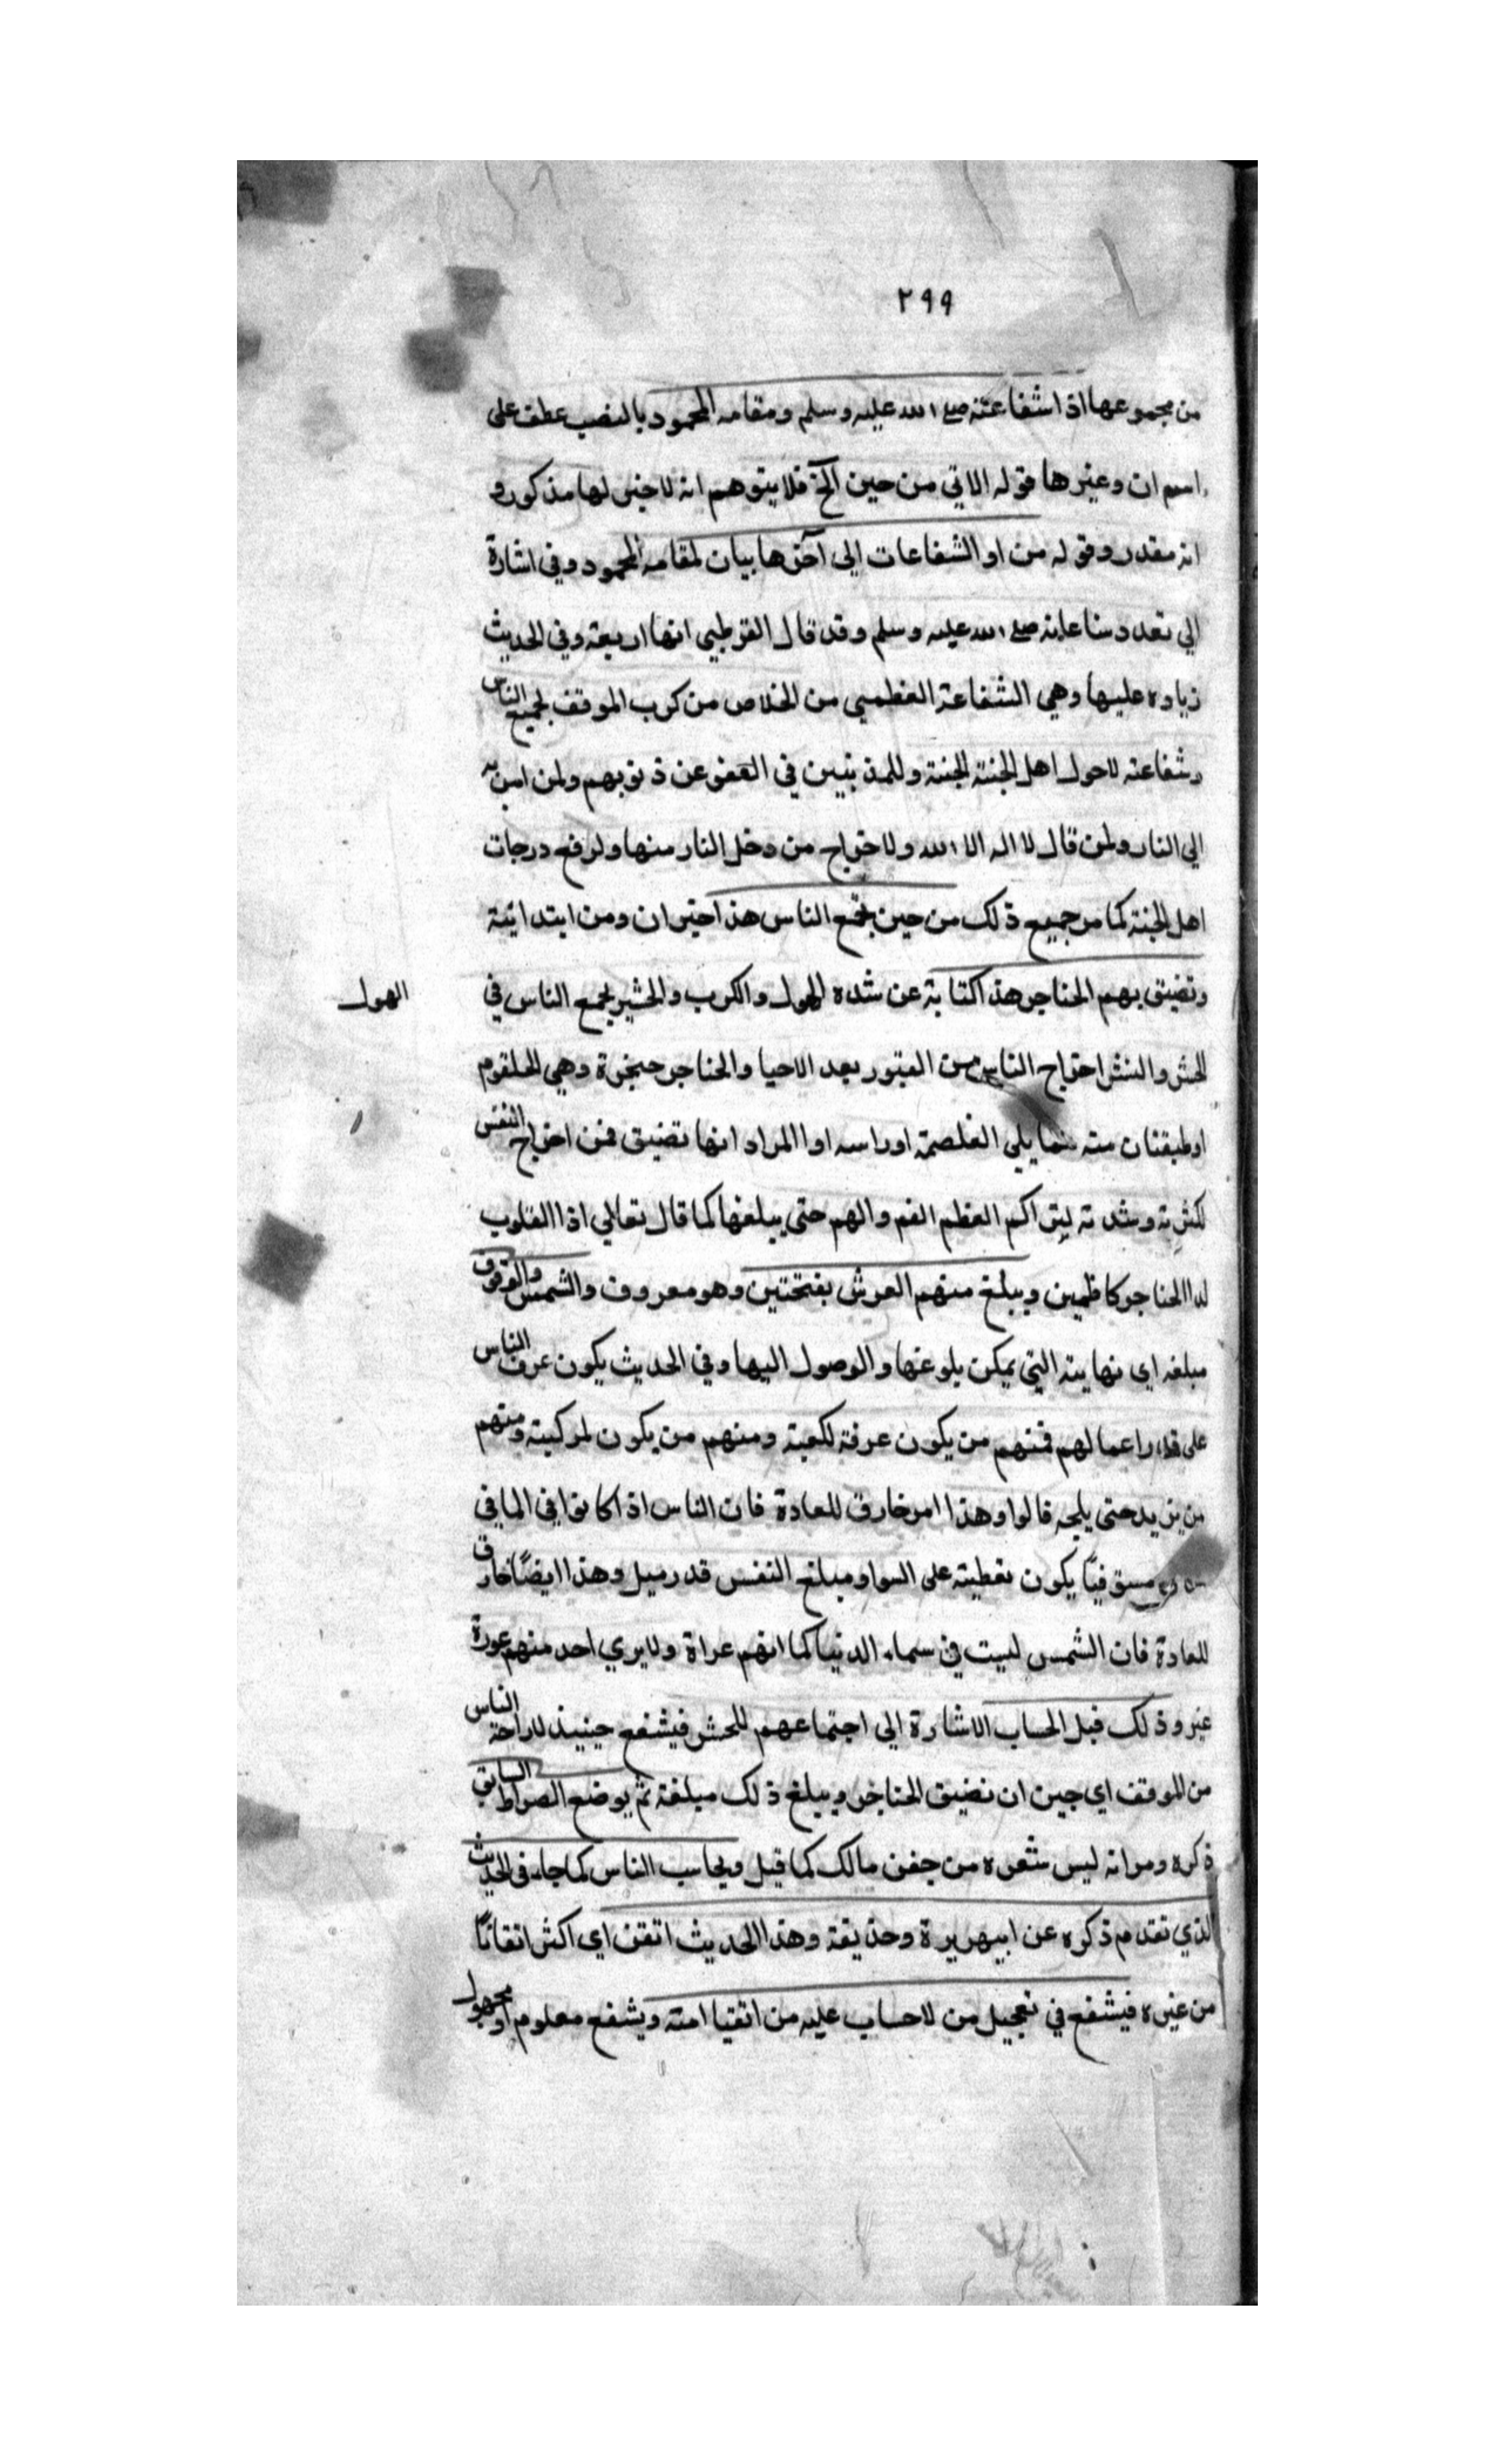 ٢٩٩
من مجموعها اذا شفاعته صلى الله عليه وسلم ومقامه المحمود بالنصب عطف على
اسم ان وغيرها قوله الاتي من حين الخ فلا يتوهم انه لا خبر لها مذكورو
انه مقدر وقوله من او الشفاعات الى آخرها بيان لمقامه المحمود وفي اشارة
الي تعدد شفاعاته صلى الله عليه وسلم وقد قال القرطبي انها اربعة وفي الحديث
زياده عليها وهي الشفاعة العظمى من الخلاص من كرب الموقف لجميع الناس
وشفاعته لاحول اهل الجنة الجنة وللمذنبين في العفو عن ذنوبهم ولمن امن به
الي النار ولمن قال لا اله الا الله ولاخراج من دخل النار منها ولرفع درجات
اهل الجنة كما مر جميع ذلك من حين يجمع الناس هذا خبر ان ومن ابتدائية
وتضيق بهم الحناجر هذا كناية عن شده الهول والكرب والحشر يجمع الناس في
الهول
الحشر والنشر اخراج الناس من القبور بعد الاحيا والحناجر حنجرة وهي الحلقوم
او طبقتان منه مما يلي الغلصمة او راسه او المراد انها تضيق فمن اخراج النفس
لكثرته وشدته ليتراكم العظم الغم والهم حتى يبلغها كما قال تعالي اذ القلوب
لدا الحناجر كاظمين ويبلغ منهم العرق بفتحتين وهو معروف والشمس والوقوف
مبلغه اي نهايته التي يمكن بلوغها والوصول اليها وفي الحديث يكون عرق الناس
على قدر اعمالهم فمنهم من يكون عرقه لكعبة ومنهم من يكون لركبته ومنهم
من يزيد حتى يلجمه قالوا وهذا امر خارق للعادة فان الناس اذا كانوا في الما في
يكون تغطيته على السوا ومبلغ النفس قدر ميل وهذا ايضًا خارق
للعادة فان الشمس ليست في سماء الدنيا كما انهم عراة ولا يري احد منهم عورة
غير وذلك قبل الحساب الاشارة الي اجتماعهم للحشر فيشفع حينيذ لاراحة الناس
من الموقف اي حين ان تضيق الحناجر ويبلغ ذلك مبلغة ثم يوضع الصراط السابق
ذكره ومر انه ليس شعره من جفن مالك كما قيل ويحاسب الناس كما جاء في الحديث
الذي تقدم ذكره عن ابيهريرة وحذيفة وهذا الحديث اتقن اي اكثر اتقانًا
من غيره فيشفع في تعجيل من لا حساب عليه من اتقيا امته ويشفع معلوم او مجهول